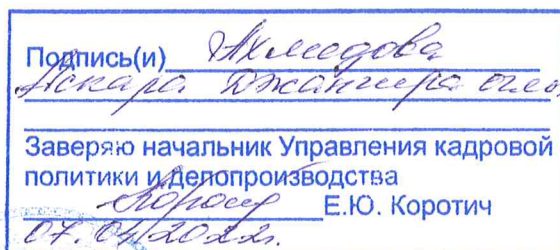 Подпись(и) Ахмедова
Аскара Джангира оглы
Заверяю начальник Управления кадровой
политики и делопроизводства
Е.Ю. Коротич
07.04.2022г.